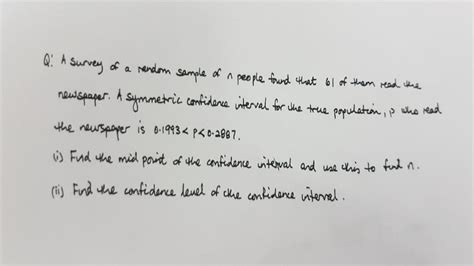 Q: A survey of a random sample of n people found that 61 of them read the
newspaper. A symmetric confidence interval for the true population, p who read
the newspaper is 0.1993 < p < 0.2887.
(i) Find the mid point of the confidence interval and use this to find n.
(ii) Find the confidence level of the confidence interval.